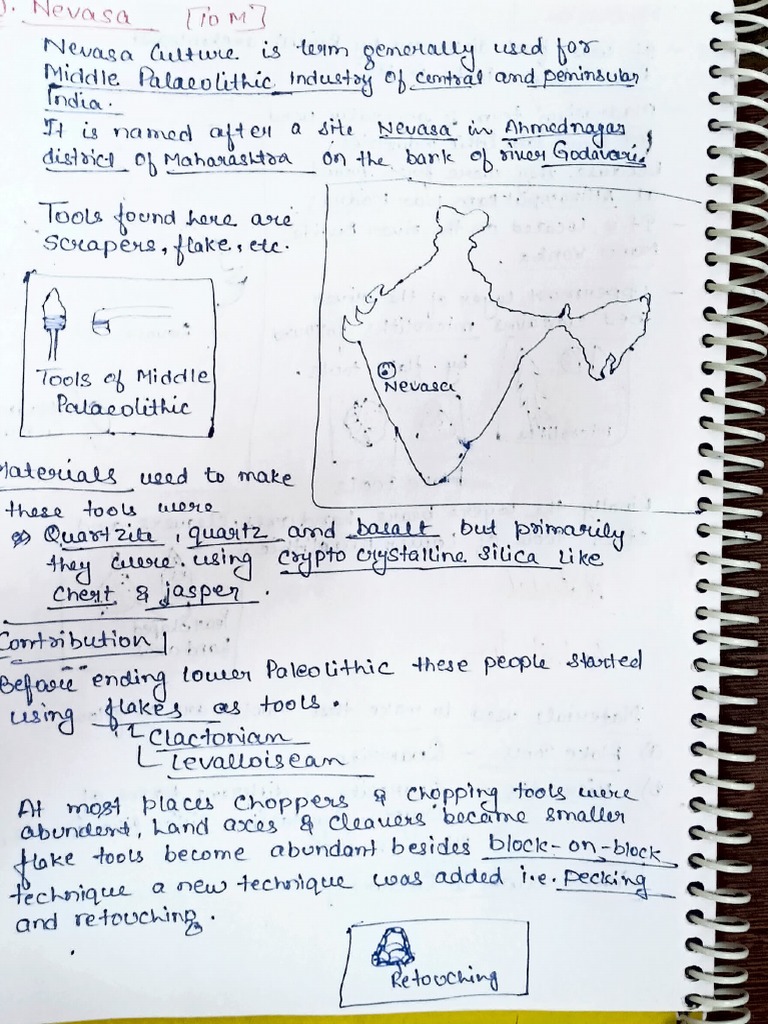 ). Nevasa [10 M]
Nevasa Culture is term generally used for
Middle Palaeolithic Industry of central and peninsular
India.
It is named after a site Nevasa in Ahmednagar
district of Maharashtra on the bank of river Godavari.
Tools found here are
scrapers, flake, etc.
Tools of Middle
Palaeolithic
Nevasa
Materials used to make
these tools were
Quartzite, quartz and basalt but primarily
they were using crypto crystalline silica like
Chert & jasper.
Contribution
Before ending lower Paleolithic these people started
using flakes as tools.
Clactonian
Levalloisean
At most places choppers & chopping tools were
abundent, hand axes & cleavers became smaller
flake tools become abundant besides block-on-block
technique a new technique was added i.e. pecking
and retouching.
Retouching